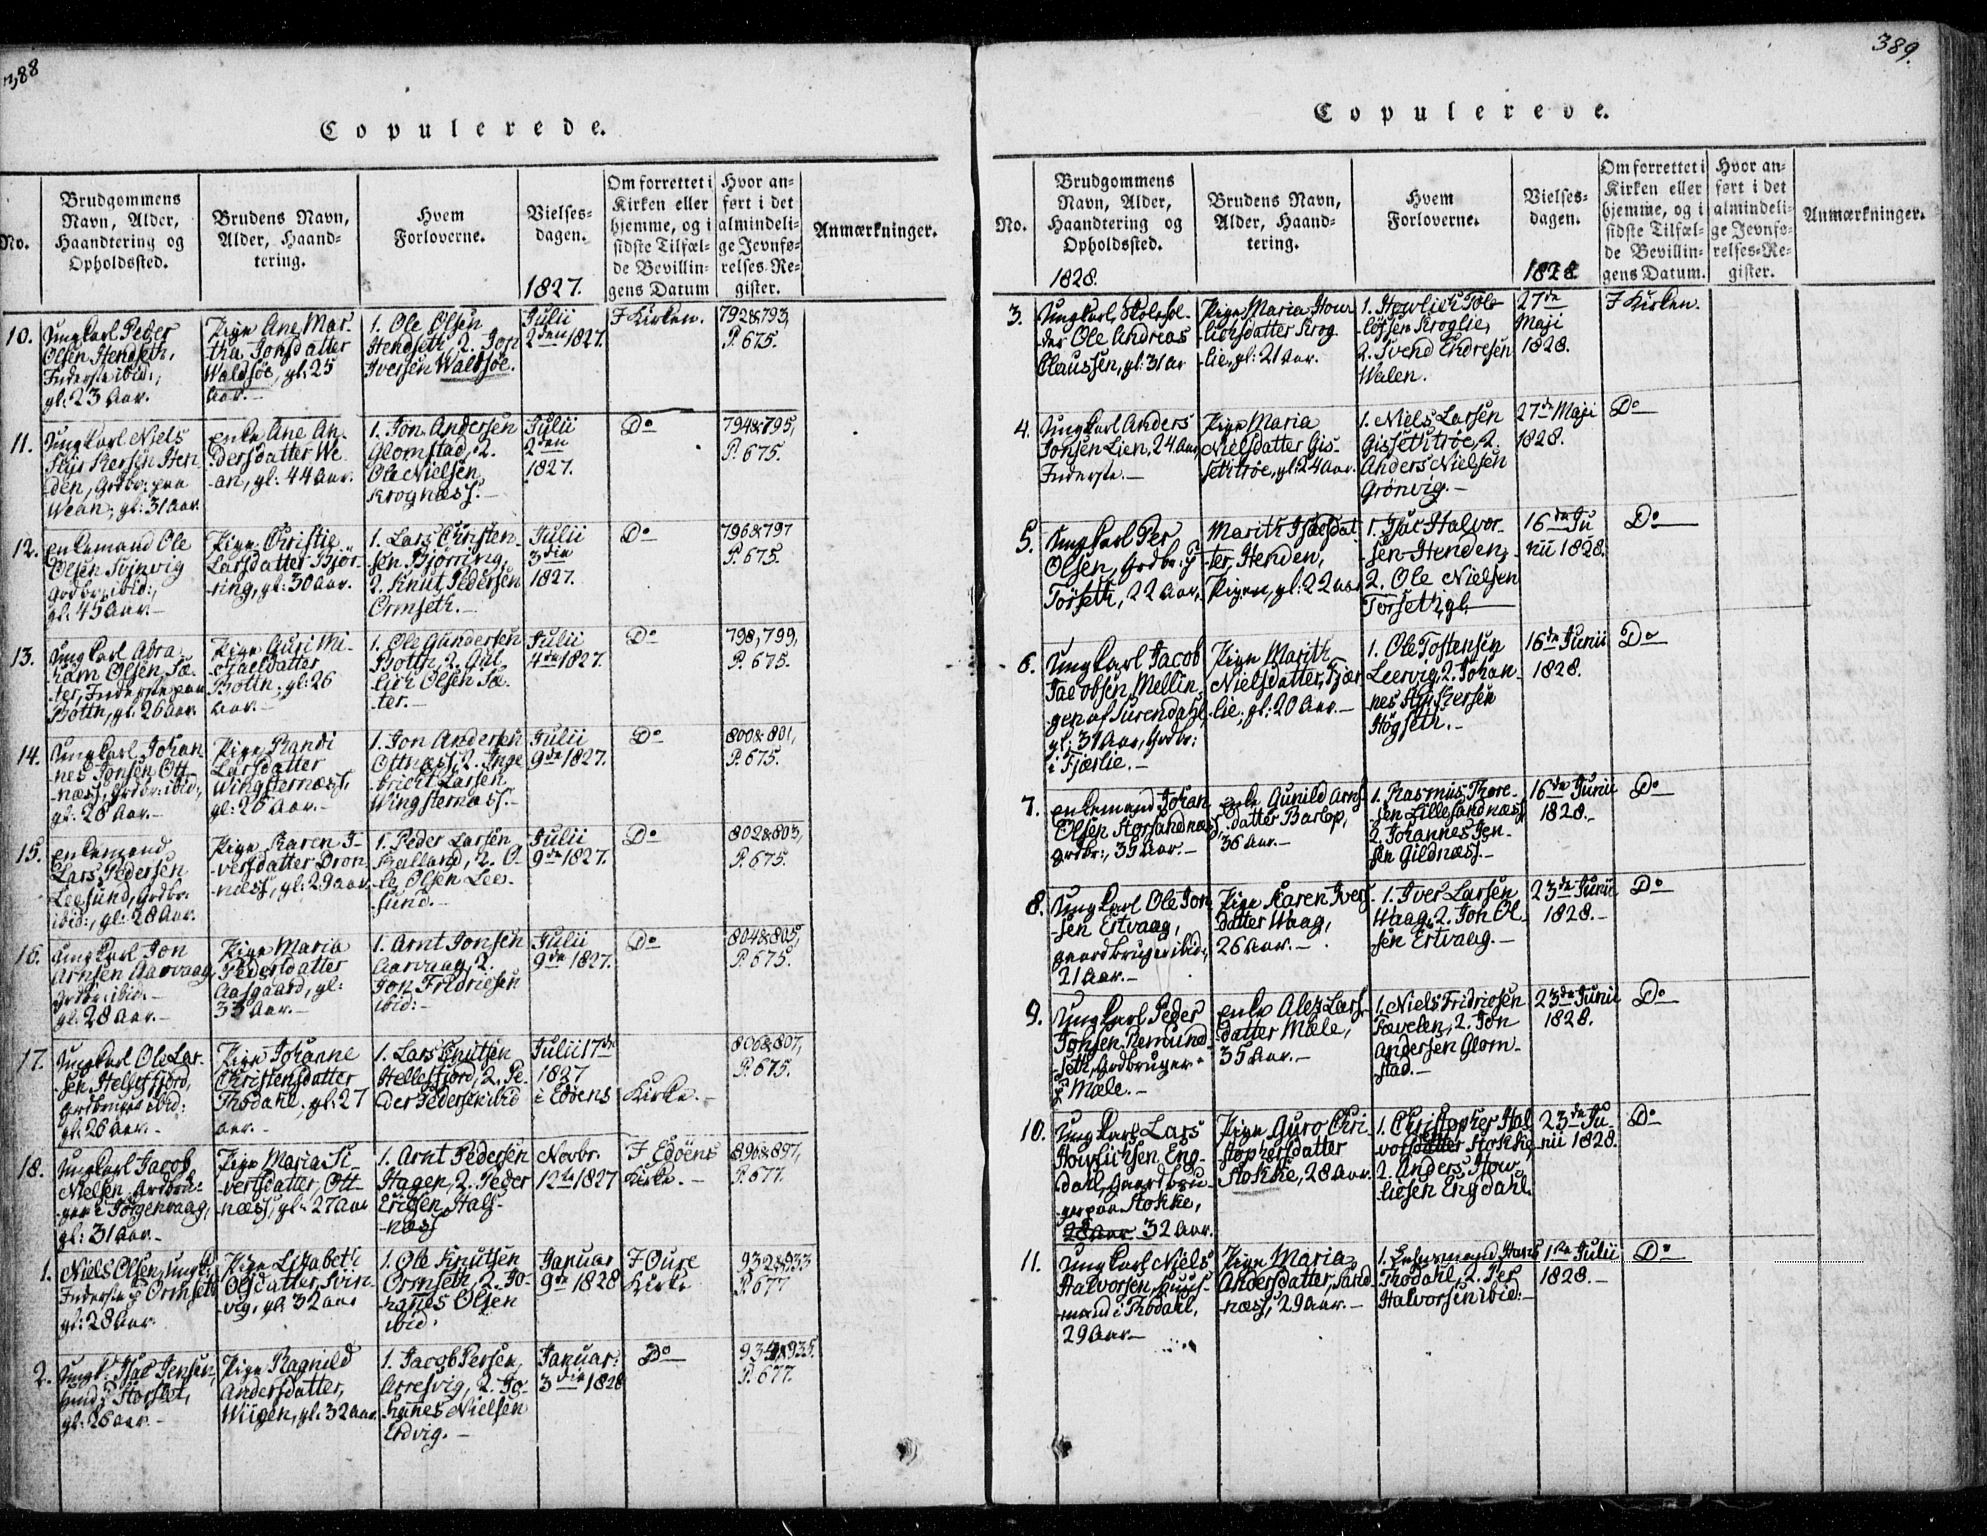 388
Copulerede.
No.
Brudgommens
Navn, Alder,
Haandtering og
Opholdssted.
Brudens Navn,
Alder, Haand-
tering.
Hvem
Forloverne.
Vielses-
dagen.
1827.
Om forrettet i
Kirken eller
hjemme, og i
sidste Tilfæl-
de Bevillin-
gens Datum
Hvor an-
ført i det
almindeli-
ge Jevnfø-
relses-Re-
gister.
Anmærkninger.
10.
Ungkarl Peder
Olsen Hendseth,
Inderste ibid:,
gl: 23 Aar.
Pige Ane Mar-
tha Jonsdatter
Waldsøe, gl: 25
Aar.
1. Ole Olsen
Hendseth, 2. Jon
Iversen Waldsøe.
Julii
2den 1827.
I Kirken.
792&793,
P. 675.
11.
Ungkarl Niels
Hen-
den, Grdbr: paa
Wean, gl: 31 Aar.
Enke Ane An-
dersdatter We-
an, gl: 44 Aar.
1. Jon Andersen
Glomstad, 2.
Ole Nielsen
Krognæss.
Julii
2den
1827.
Do
794&795,
P. 675.
12.
Enkemand Ole
Olsen Svinvig
Grdbr: ibid:,
gl: 45 Aar.
Pige Christie
Larsdatter Bjør-
ring, gl: 30 Aar.
1. Lars Christen-
sen Bjørring,
2. Knut Pedersen
Ormseth.
Julii
3die
1827.
Do
796&797
P. 675.
13.
Ungkarl Abra-
ham Olsen Sæ-
ter, Inderste paa
Bottn, gl: 26 Aar.
Pige Guri Mi-
chaelsdatter
Bottn, gl: 26
Aar.
1. Ole Gundersen
Bottn, 2. Gul-
lich Olsen Sæ-
ter.
Julii
4de 1827.
Do
798, 799,
P. 675.
14.
Ungkarl Johan-
nes Jonsen Ott-
næss, Grdbr: ibid:,
gl: 28 Aar.
Pige Randi
Larsdatter
Wingsternæss,
gl: 26 Aar.
1. Jon Andersen
Ottnæss, 2. Inge-
bricht Larsen
Wingsternæss.
Julii
9de 1827.
Do
800&801,
P. 675.
15.
Enkemand
Lars Pedersen
Leesund, Grdbr:
ibid:, gl: 28 Aar.
Pige Karen I-
versdatter Dron-
næss, gl: 29 Aar.
1. Peder Larsen
Kalland, 2. O-
le Olsen Lee-
sund.
Julii
9de 1827.
Do
802&803,
P. 675.
16.
Ungkarl Jon
Arnsen Aarvaag
Grdbr: ibid:
gl: 28 Aar.
Pige Maria
Pedersdatter
Aasgaard, gl:
33 Aar.
1. Arnt Jonsen
Aarvaag, 2.
Jon Fridrichsen
ibid:
Julii
9de 1827.
Do
804&805,
P. 675.
17.
Ungkarl Ole Lar-
sen Helsefjord,
Grdbruger ibid:
gl: 26 Aar.
Pige Johanne
Christensdatter
Thodahl, gl: 27
Aar.
1. Lars Knutsen
Hellesfjord, 2. Pe-
der Pedersen ibid
Julii 17de
1827
i Edøens
Kirke.
806&807,
P. 675.
18.
Ungkarl Jacob
Nielsen, Grdbru-
ger i Jørgenvaag,
gl: 31 Aar.
Pige Maria Si-
vertsdatter, Ott-
næss, gl: 27 Aar
1. Arnt Pedersen
Hagen, 2. Peder
Erichsen Hals-
næss
Novbr.
12te 1827
I Edøens
Kirke.
896&897,
P. 677.
1.
Niels Olsen, Ungk:,
Inderste p Ormseth
gl: 28 Aar.
Pige Lisabeth
Olsdatter, Svin-
vig, gl: 32 Aar
1. Ole Knutsen
Ormseth, 2. Jo-
hannes Olsen
ibid:
Januar
9de 1828
I Oure
Kirke
932&933
P. 677
2.
Ungk: Isac Jensen,
gl: 26 Aar.
Pige Ragnild
Andersdatter,
Wiigen, gl: 32 Aar.
1. Jacob Persen
Arresvig, 2. Jo-
hannes Nielsen
Erdvig.
Januar:
3die 1828
Do
934&935.
P. 677.
389.
Copulerede.
No.
Brudgommens
Navn, Alder,
Haandtering og
Opholdssted.
1828.
Brudens Navn,
Alder, Haand-
tering.
Hvem
Forloverne.
Vielses-
dagen.
1828.
Om forrettet i
Kirken eller
hjemme, og i
sidste Tilfæl-
de Bevillin-
gens Datum.
Hvor an-
ført i det
almindeli-
ge Jevnfø-
relses-Re-
gister.
Anmærkninger.
3.
Ungkarl Skolehol-
der Ole Andreas
Claussen, gl: 31 Ar
Pige Maria How-
lichsdatter Krog-
lie, gl: 21 Aar.
1. Howlich Tol-
løfsen Kroglie,
2. Svend Endresen
Walen.
27de
Maji
1828.
I Kirken.
4.
Ungkarl Anders
Jonsen Lien, 24 Aar,
Inderste.
Pige Maria
Nielsdatter Gis-
setitrøe, gl: 24 Aar.
1. Niels Larsen
Gissetitrøe, 2.
Anders Nielsen
Grönvig.
27de Maji
1828.
Do
5.
Ungkarl Per
Olsen, Grdbr: p
Torseth, 22 Aar,
Marith Isacsdat-
ter Henden,
Pigen, gl: 22 Aar
1. Isac Halvor-
sen Henden,
2. Ole Nielsen
Torseth, gl.
16de Ju-
nii 1828.
Do
6.
Ungkarl Jacob
Jacobsen Mellin-
gen af Surendahl,
gl: 31 Aar, Grdbr:
i Fjærlie.
Pige Marith
Nielsdatter, Fjær-
lie, gl: 20 Aar.
1. Ole Tostensen
Leervig, 2. Johan-
nes
Högseth.
16de Junii
1828.
Do
7.
Enkemand Johan
Olsen Storsandnæss,
Grdbr:, 35 Aar.
Enke Gunild Arns-
datter Barlop,
36 Aar.
1. Rasmus Thore-
sen Lillesandnæss
2. Johannes Jen-
sen Gildnæss.
16de Junii
1828.
Do
8.
Ungkarl Ole Jon-
sen Ertvaag,
Gaardbruger ibid:,
21 Aar.
Pige Karen Ivers-
datter Waag,
26 Aar.
1. Iver Larsen
Waag, 2. Jon Ol-
sen Ertvaag.
23de Junii
1828.
Do
9.
Ungkarl Peder
Johsen Remund-
seth, Grdbruger
p Mæle.
Enke Alex Lars-
datter Mæle,
35 Aar.
1. Niels Fridricsen
Tævelen, 2. Jon
Andersen Glom-
stad.
23de Junii
1828.
Do
10.
Ungkarl Lars
Howlichsen Eng-
dahl, Gaardbru-
ger paa Stokke,
28 Aar 32 Aar.
Pige Guro Chri-
stophersdatter
Stokke, 28 Aar.
1. Christopher Hal-
vorsdatter Stokke,
2. Anders How-
licsen Engdahl.
23de Ju-
nii 1828.
Do
11.
Ungkarl Niels
Halvorsen, Huus-
mand i Thodahl,
29 Aar.
Pige Maria
Andersdatter, Sand-
næss, 29 Aar.
1. Lehnsmand Hans
Thodahl, 2. Per
Halvorsen ibid:
1ste Julii
1828.
Do